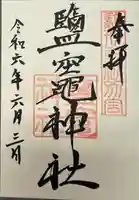 奉拝
鹽竈神社
令和六年六月三日